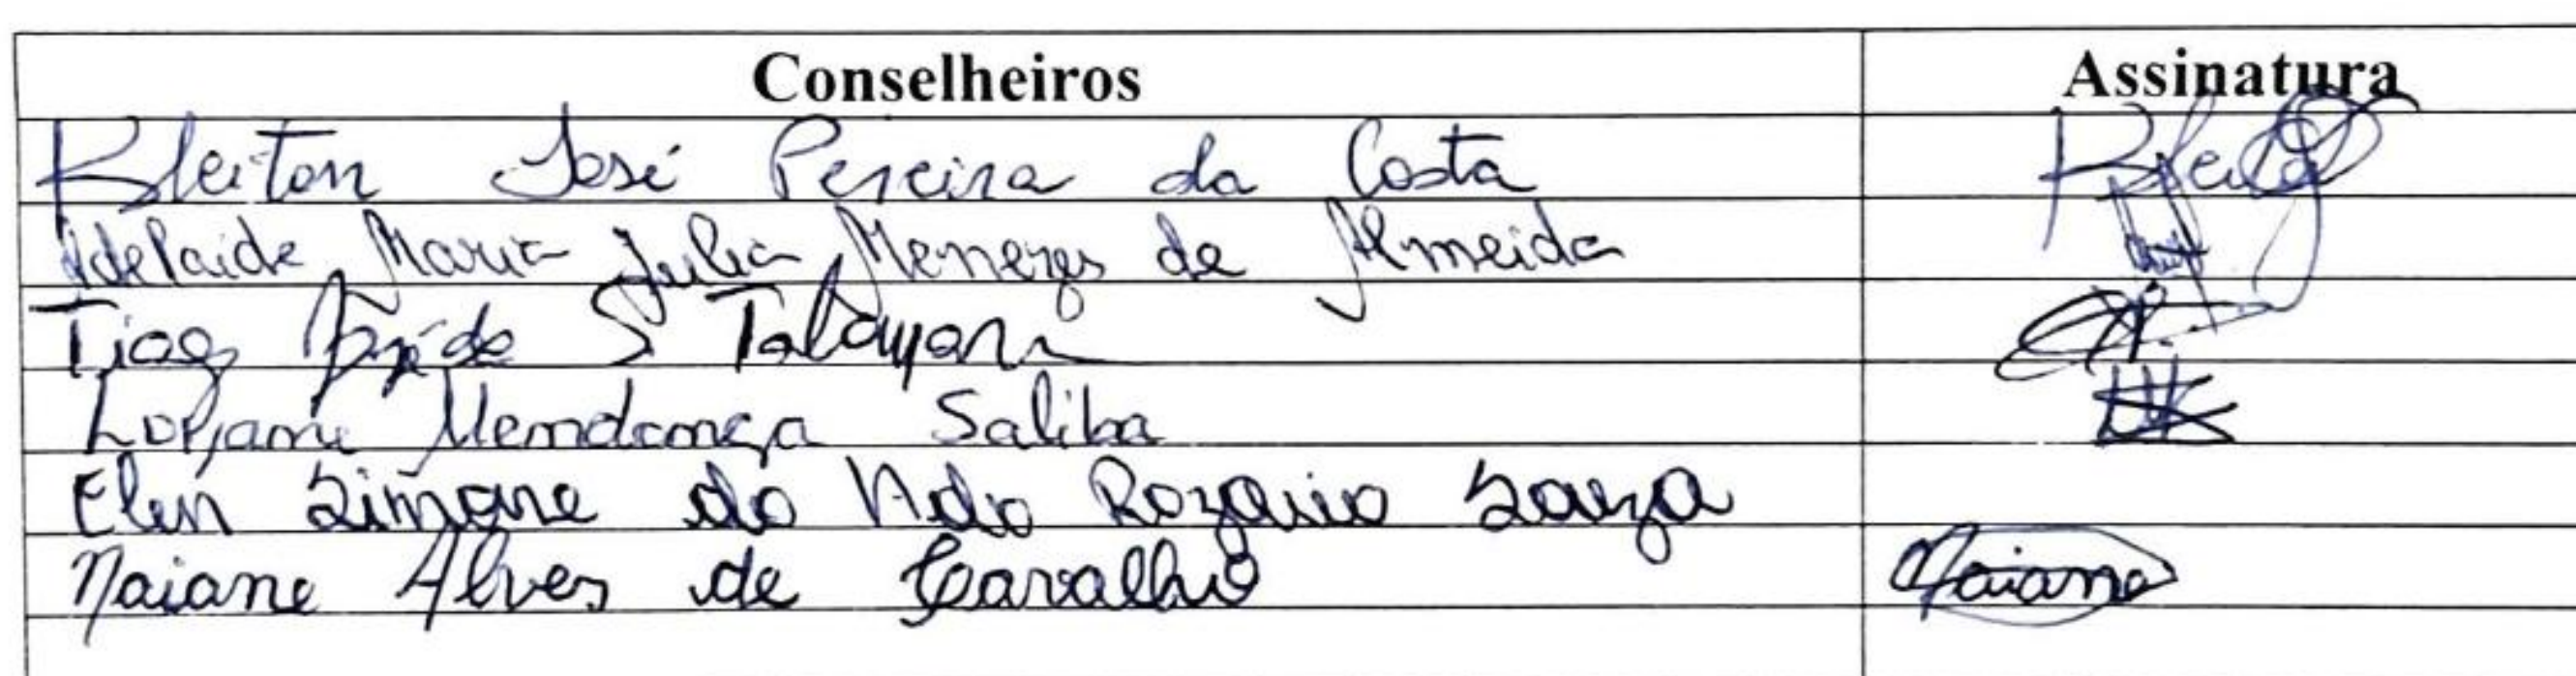 Conselheiros Assinatura
Kleiton José Pereira da Costa
Adelaide Maria Julia Menezes de Almeida
Tiago S
Mendonça Saliba
Elen Simone do Rozario Souza
Naiane Alves de Carvalho Naiane